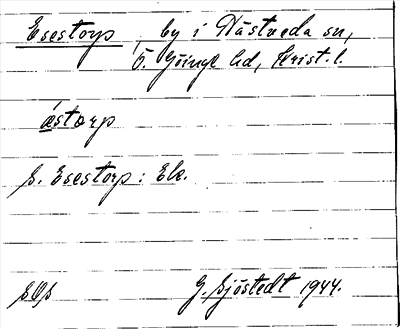 Esestorp, by i Nästveda sn,
Ö. Göinge hd, Krist. l.
ástorp
s. Esestorp: Ek.
SOS G. Sjöstedt 1944.